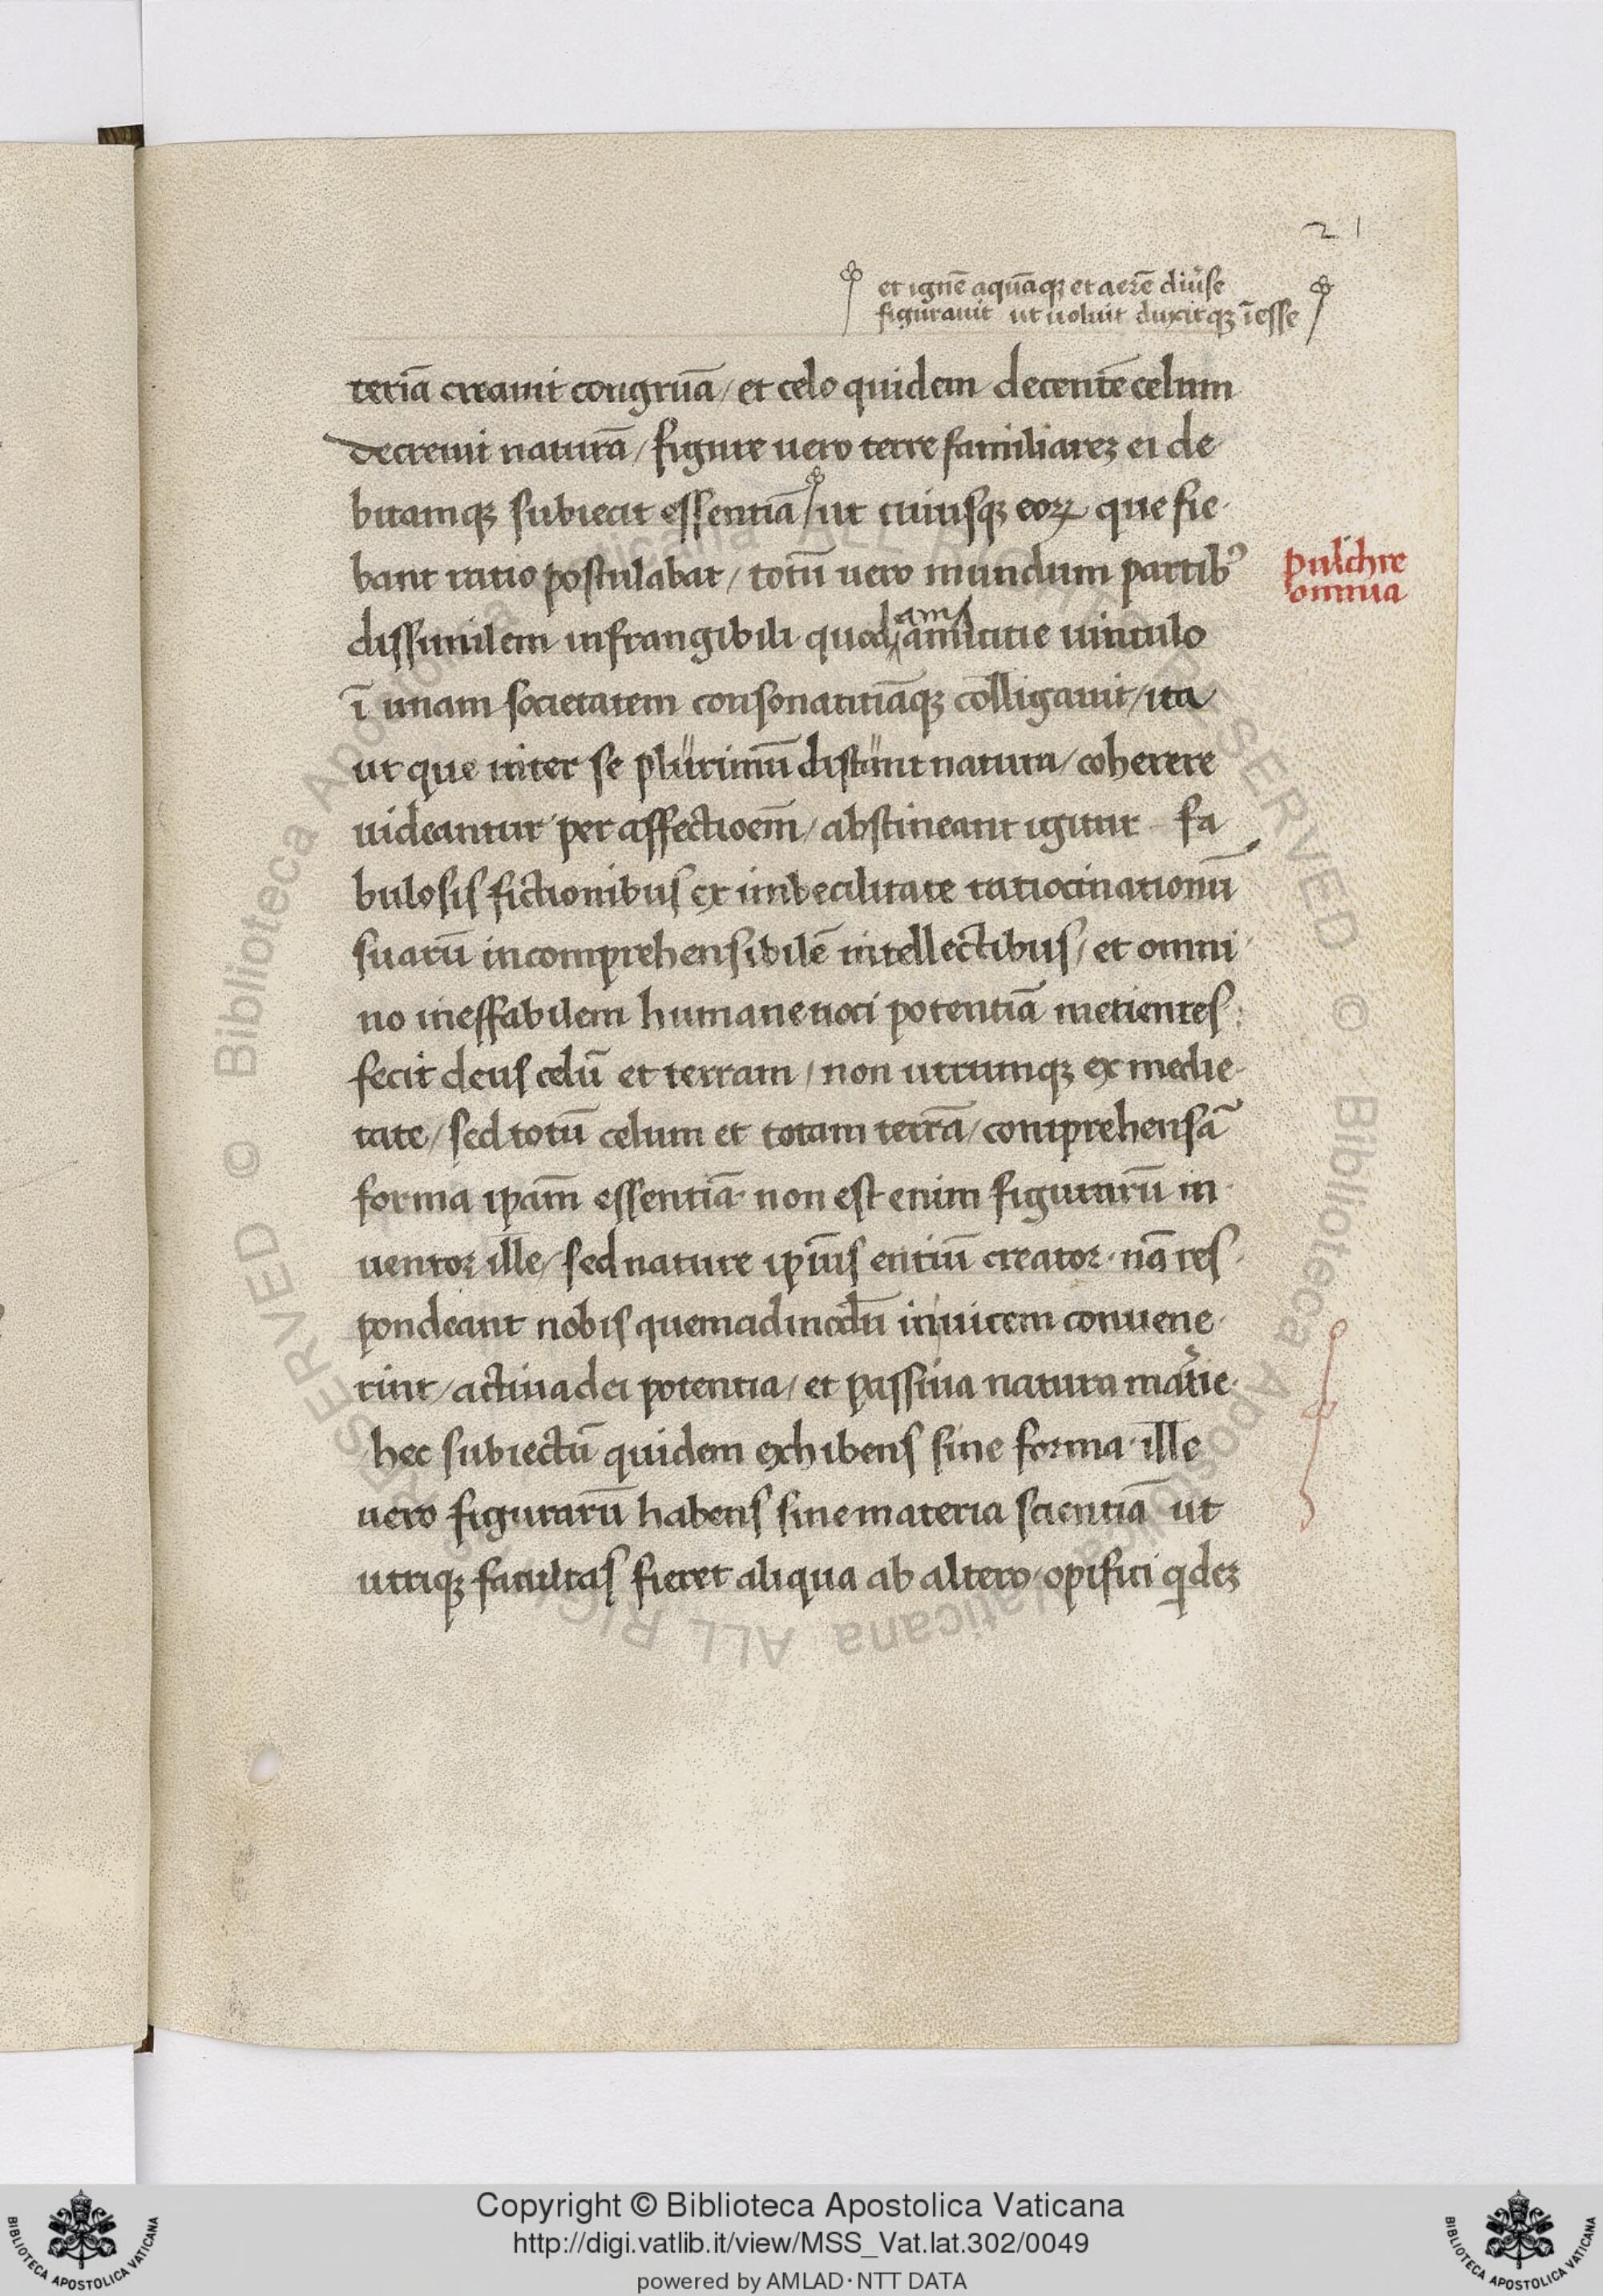 21
et ignē aquāqꝫ et aerē diu̾se
figurauit ut uoluit duxitqꝫ ī esse
teriā creauit congruā / et celo quidem decentē celum
decreuit naturā / figure uero terre familiareꝫ ei de
bitamqꝫ subiecit essentiā / ut cuiusqꝫ eoꝝ que fie
bant ratio postulabat / totū uero mundum partibꝰ
pulchre
omnia
dissimilem infrangibili quod amicitie uinculo
am
ī unam societatem consonantiāqꝫ colligauit / ita
ut que inter se plurimū distant natura / coherere
uideantur per affectioem̄ / abstineant igitur fa
bulosis fictionibus ex imbecilitate ratiocinationū
suarū incomprehensibilē intellectibus / et omni
no ineffabilem humane uoci potentiā metientes
fecit deus celū et terram / non utrumqꝫ ex medie
tate / sed totū celum et totam terrā / comprehensā
forma ip̄am essentiā · non est enim figurarū in
uentor ille / sed nature ip̄ius entiū creator · nā res
pondeant nobis quemadmodū inuicem conuene
rint / actiua dei potentia / et passiua natura mat̾ie
hec subiectū quidem exhibens sine forma · ille
uero figurarū habens sine materia scientiā ut
utriqꝫ facultas fieret aliqua ab altero / opifici qͥdeꝫ
© Biblioteca Apostolica Vaticana ALL RIGHTS RESERVED © Biblioteca Apostolica Vaticana ALL RIGHTS RESERVED
Copyright © Biblioteca Apostolica Vaticana
http://digi.vatlib.it/view/MSS_Vat.lat.302/0049
powered by AMLAD·NTT DATA
BIBLIOTECA APOSTOLICA VATICANA
BIBLIOTECA APOSTOLICA VATICANA